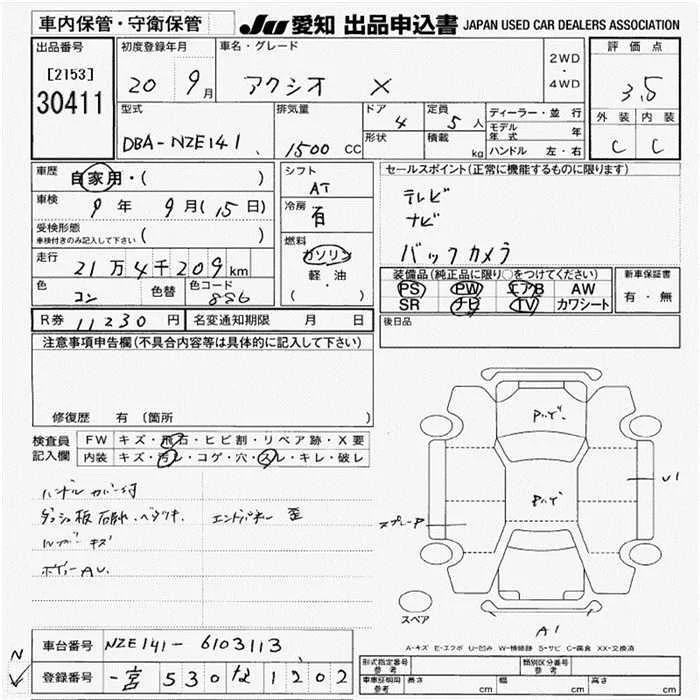 車内保管・守衛保管
JU 愛知 出品申込書 JAPAN USED CAR DEALERS ASSOCIATION
出品番号
[2153]
30411
初度登録年月
20 9月
車名・グレード
アクシオ X
2WD
・
4WD
評価点
3.5
外装 内装
C C
型式
DBA-NZE141
排気量
1500 CC
ドア
4
形状
定員
5人
積載
kg
ディーラー・並行
モデル年式 年
ハンドル 左・右
車歴
自家用・( )
車検
9年 9月(15日)
受検形態
車検付きのみ記入して下さい ( )
走行
21万4千209km
色
コン
色替
色コード
8S6
シフト
AT
冷房
有
燃料
ガソリン
軽・油
( ・ )
セールスポイント(正常に機能するものに限ります)
テレビ
ナビ
バックカメラ
装備品(純正品に限り○をつけてください)
PS PW エアB AW
SR ナビ TV カワシート
新車保証書
有・無
R券 11230 円
名変通知期限 月 日
後日品
注意事項申告欄(不具合内容等は具体的に記入して下さい)
修復歴 有 (箇所 )
検査員
記入欄
FW キズ・飛石・ヒビ割・リペア跡・X要
内装 キズ・汚レ・コゲ・穴・スレ・キレ・破レ
ハンドルカバー付
エンドパネル 歪
キズ
ボディーAU
U1
スペア
A1
A-キズ E-エクボ U-凹み W-補修跡 S-サビ C-腐食 XX-交換済
N
車台番号 NZE141-6103113
登録番号 一宮 530 な 1202
形式指定番号
参考
類別区分番号
参考
車庫証明用
参考
長さ cm 幅 cm 高さ cm